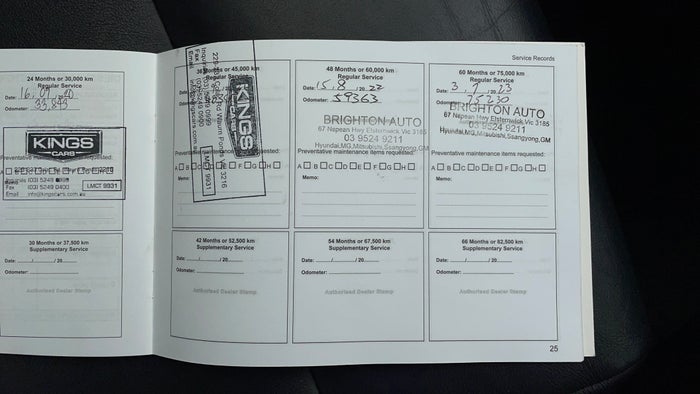 Service Records
24 Months or 30,000 km
Regular Service
Date: 16, 07, 20
Odometer: 33,843
KINGS
CARS
Preventative maintenance items requested:
A B C D E F G H
Fax (03) 5249 0400
Email info@kingscars.com.au
LMCT 9931
Memo:
30 Months or 37,500 km
Supplementary Service
Date: / / 20
Odometer:
36 Months or 45,000 km
Regular Service
KINGS
CARS
LMCT 9931
Preventative maintenance items requested:
A B C D E F G H
Memo:
42 Months or 52,500 km
Supplementary Service
Date: / / 20
Odometer:
Authorised Dealer Stamp
48 Months or 60,000 km
Regular Service
Date: 15, 8 / 20 22
Odometer: 59363
BRIGHTON AUTO
67 Nepean Hwy Elsternwick, Vic 3185
03 9524 9211
Hyundai,MG,Mitsubishi,Ssangyong,GM
Preventative maintenance items requested:
A B C D E F G H
Memo:
54 Month or 67,500 km
Supplementary Service
Date: / / 20
Odometer:
Authorised Dealer Stamp
60 Months or 75,000 km
Regular Service
Date: 3, 7 / 20 23
Odometer: 75230
BRIGHTON AUTO
67 Nepean Hwy Elsternwick, Vic 3185
03 9524 9211
Hyundai,MG,Mitsubishi,Ssangyong,GM
Preventative maintenance items requested:
A B C D E F G H
Memo:
66 Months or 82,500 km
Supplementary Service
Date: / / 20
Odometer:
Authorised Dealer Stamp
25